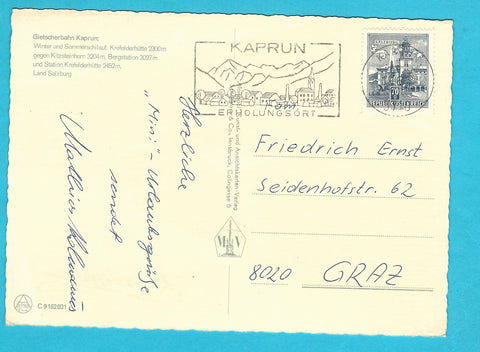 Gletscherbahn Kaprun:
Winter und Sommerschilauf, Krefelderhütte 2300m
gegen Kitzsteinhorn 3204m, Bergstation 3027m
und Station Krefelderhütte 2452m,
Land Salzburg
KAPRUN
ERHOLUNGSORT
70
REPUBLIK ÖSTERREICH
Herzliche
„Mini"-Urlaubsgrüße
sendet
Friedrich Ernst
Seidenhofstr. 62
8020 GRAZ
C 9162831